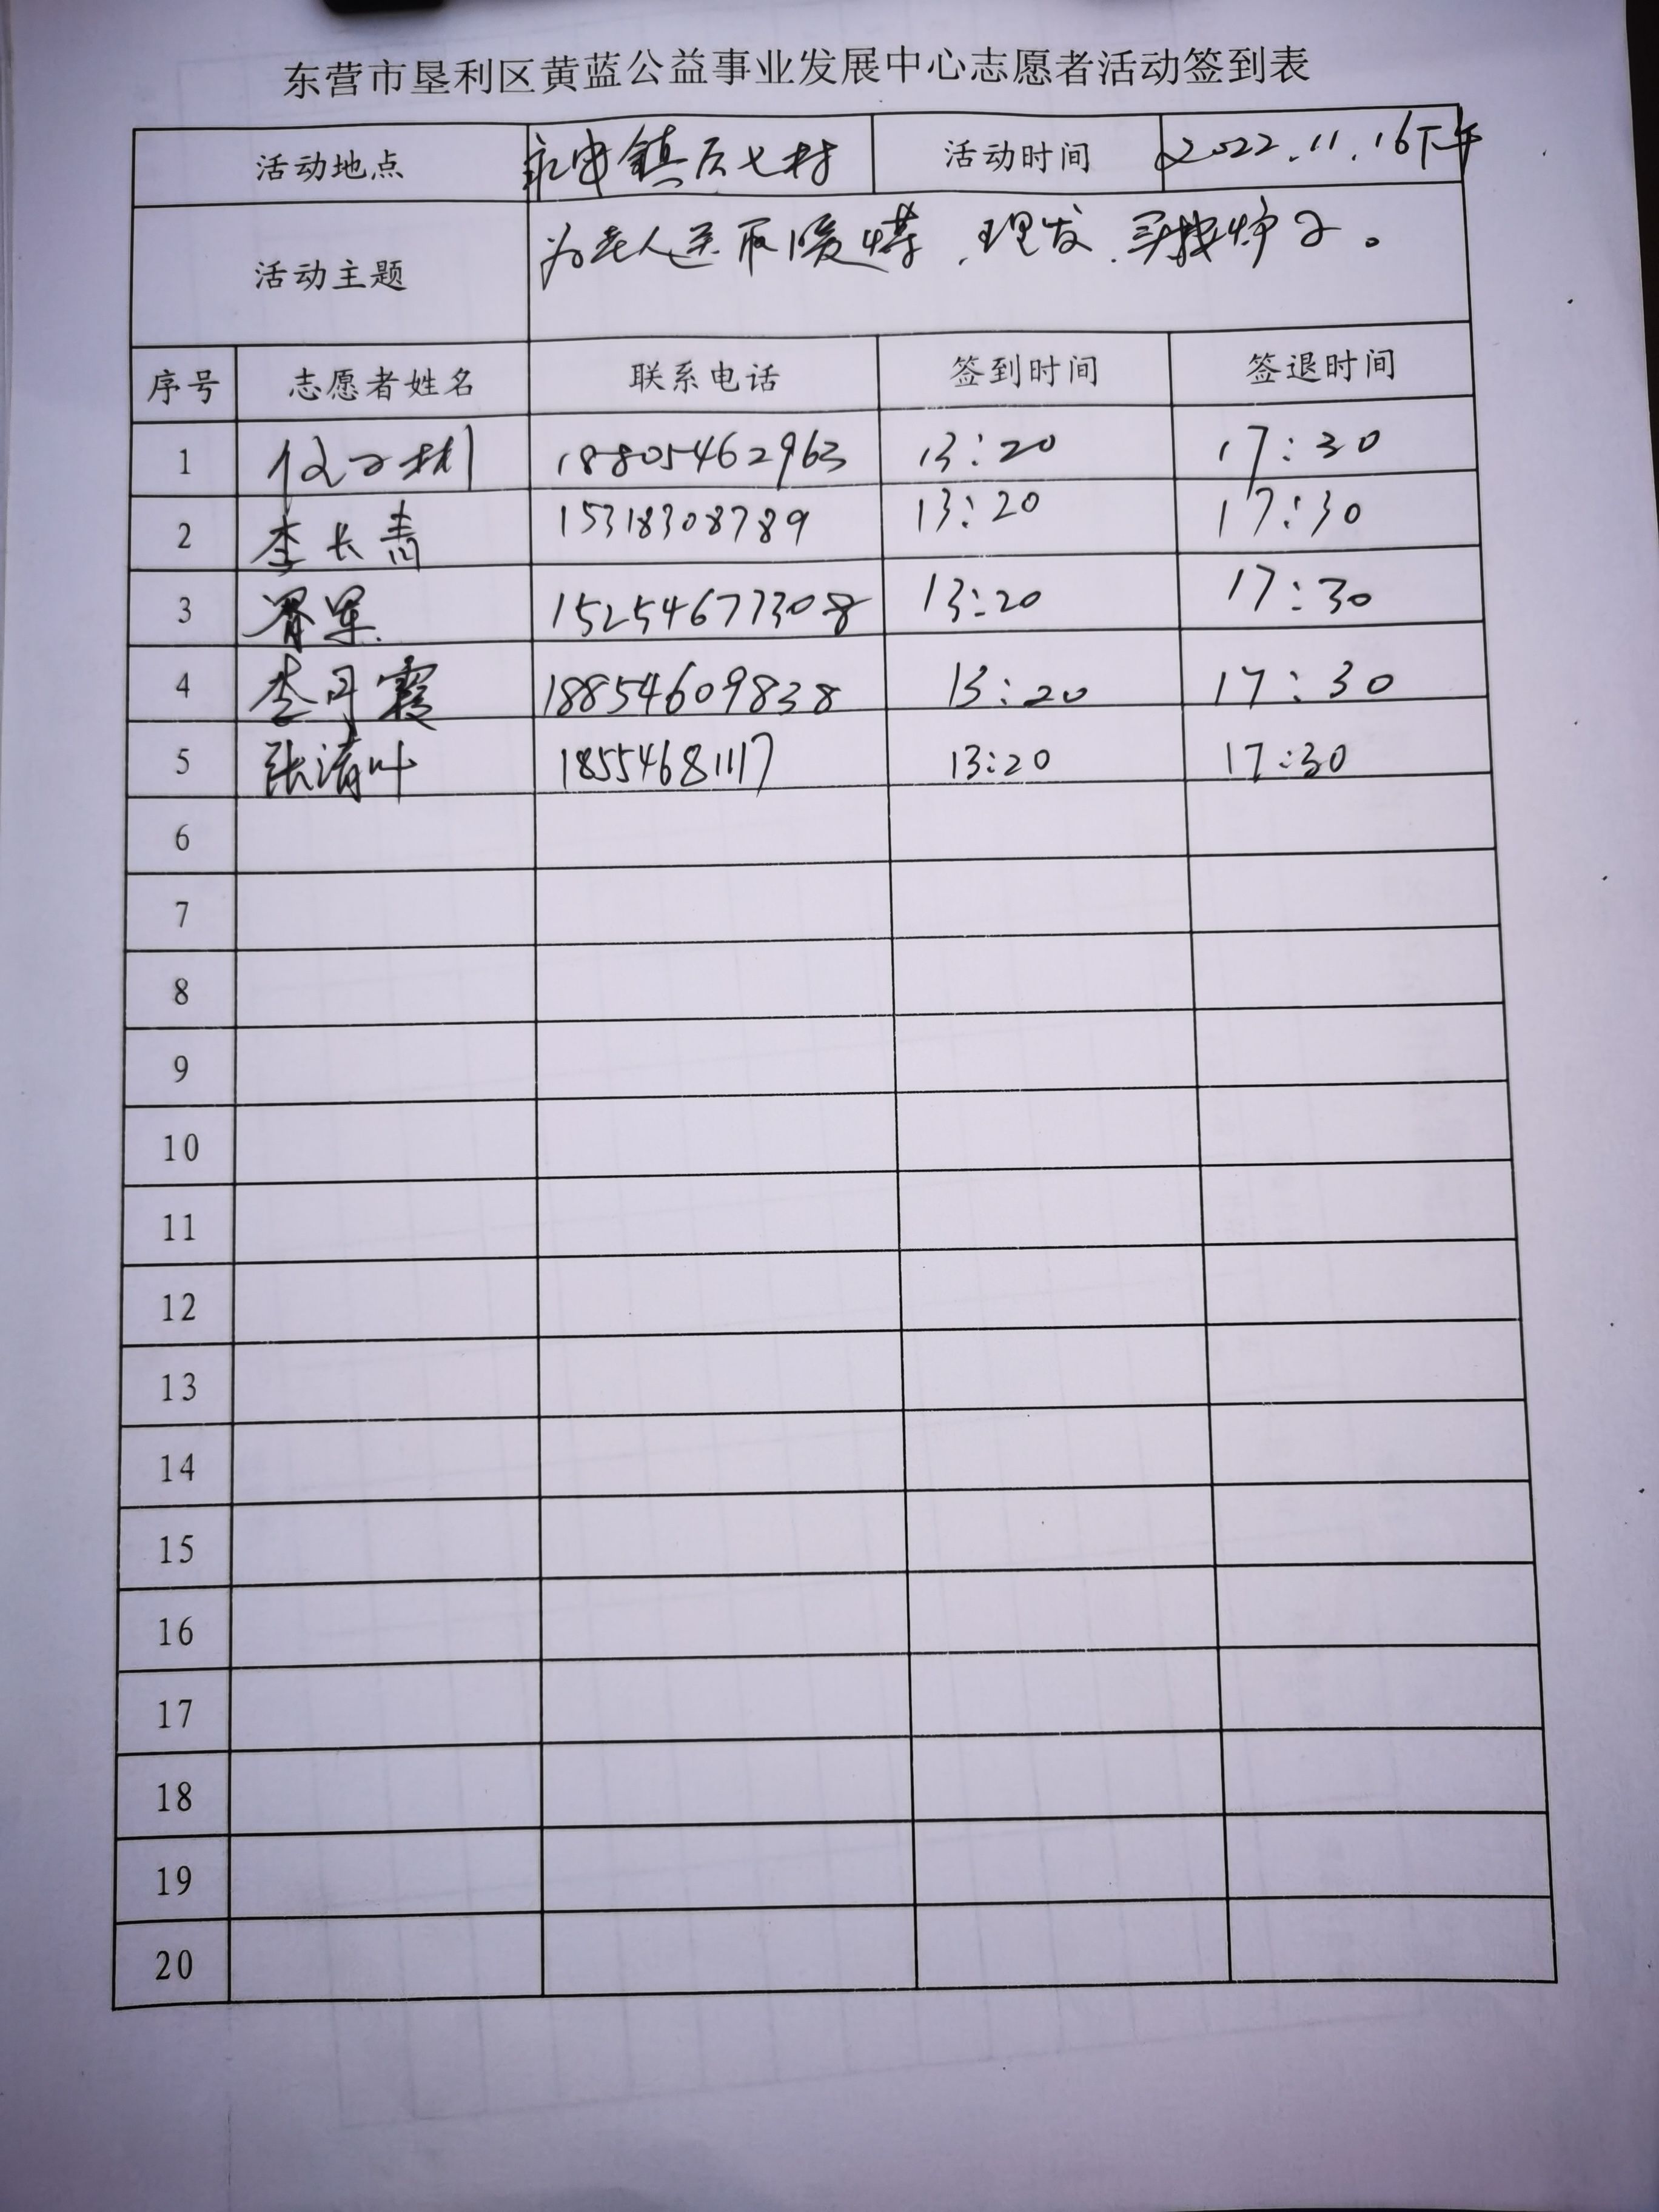 东营市垦利区黄蓝公益事业发展中心志愿者活动签到表
活动地点 永安镇后七村 活动时间 2022.11.16下午
活动主题 为老人送取暖煤、理发、买找炉子。
序号 志愿者姓名 联系电话 签到时间 签退时间
1 18805462963 13:20 17:30
2 李长青 15318308789 13:20 17:30
3 胥军 15254677308 13:20 17:30
4 李丹霞 18854609838 13:20 17:30
5 张清叶 18554681117 13:20 17:30
6
7
8
9
10
11
12
13
14
15
16
17
18
19
20